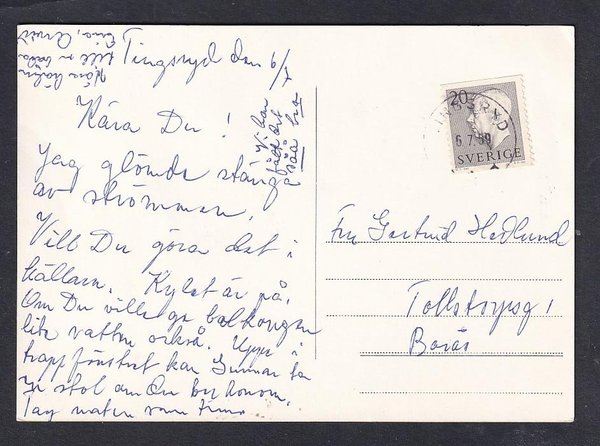 Tingsryd den 6/7
Kära Du!
Jag glömde stänga
av strömmen.
Vill Du göra det i
källaren. Kylet är på.
Om Du ville ge balkongen
lite vatten också. Uppe i
trappfönstret kan Gunnar ta
en stol om Du ber honom.
Tag maten som finns
Vi har
fått det
så bra
Kära hälsn
till er båda
Eina, Arvid
20
TINGSRYD
6.7.59
SVERIGE
Fru Gertrud Hedlund
Tollstorpsg 1
Borås